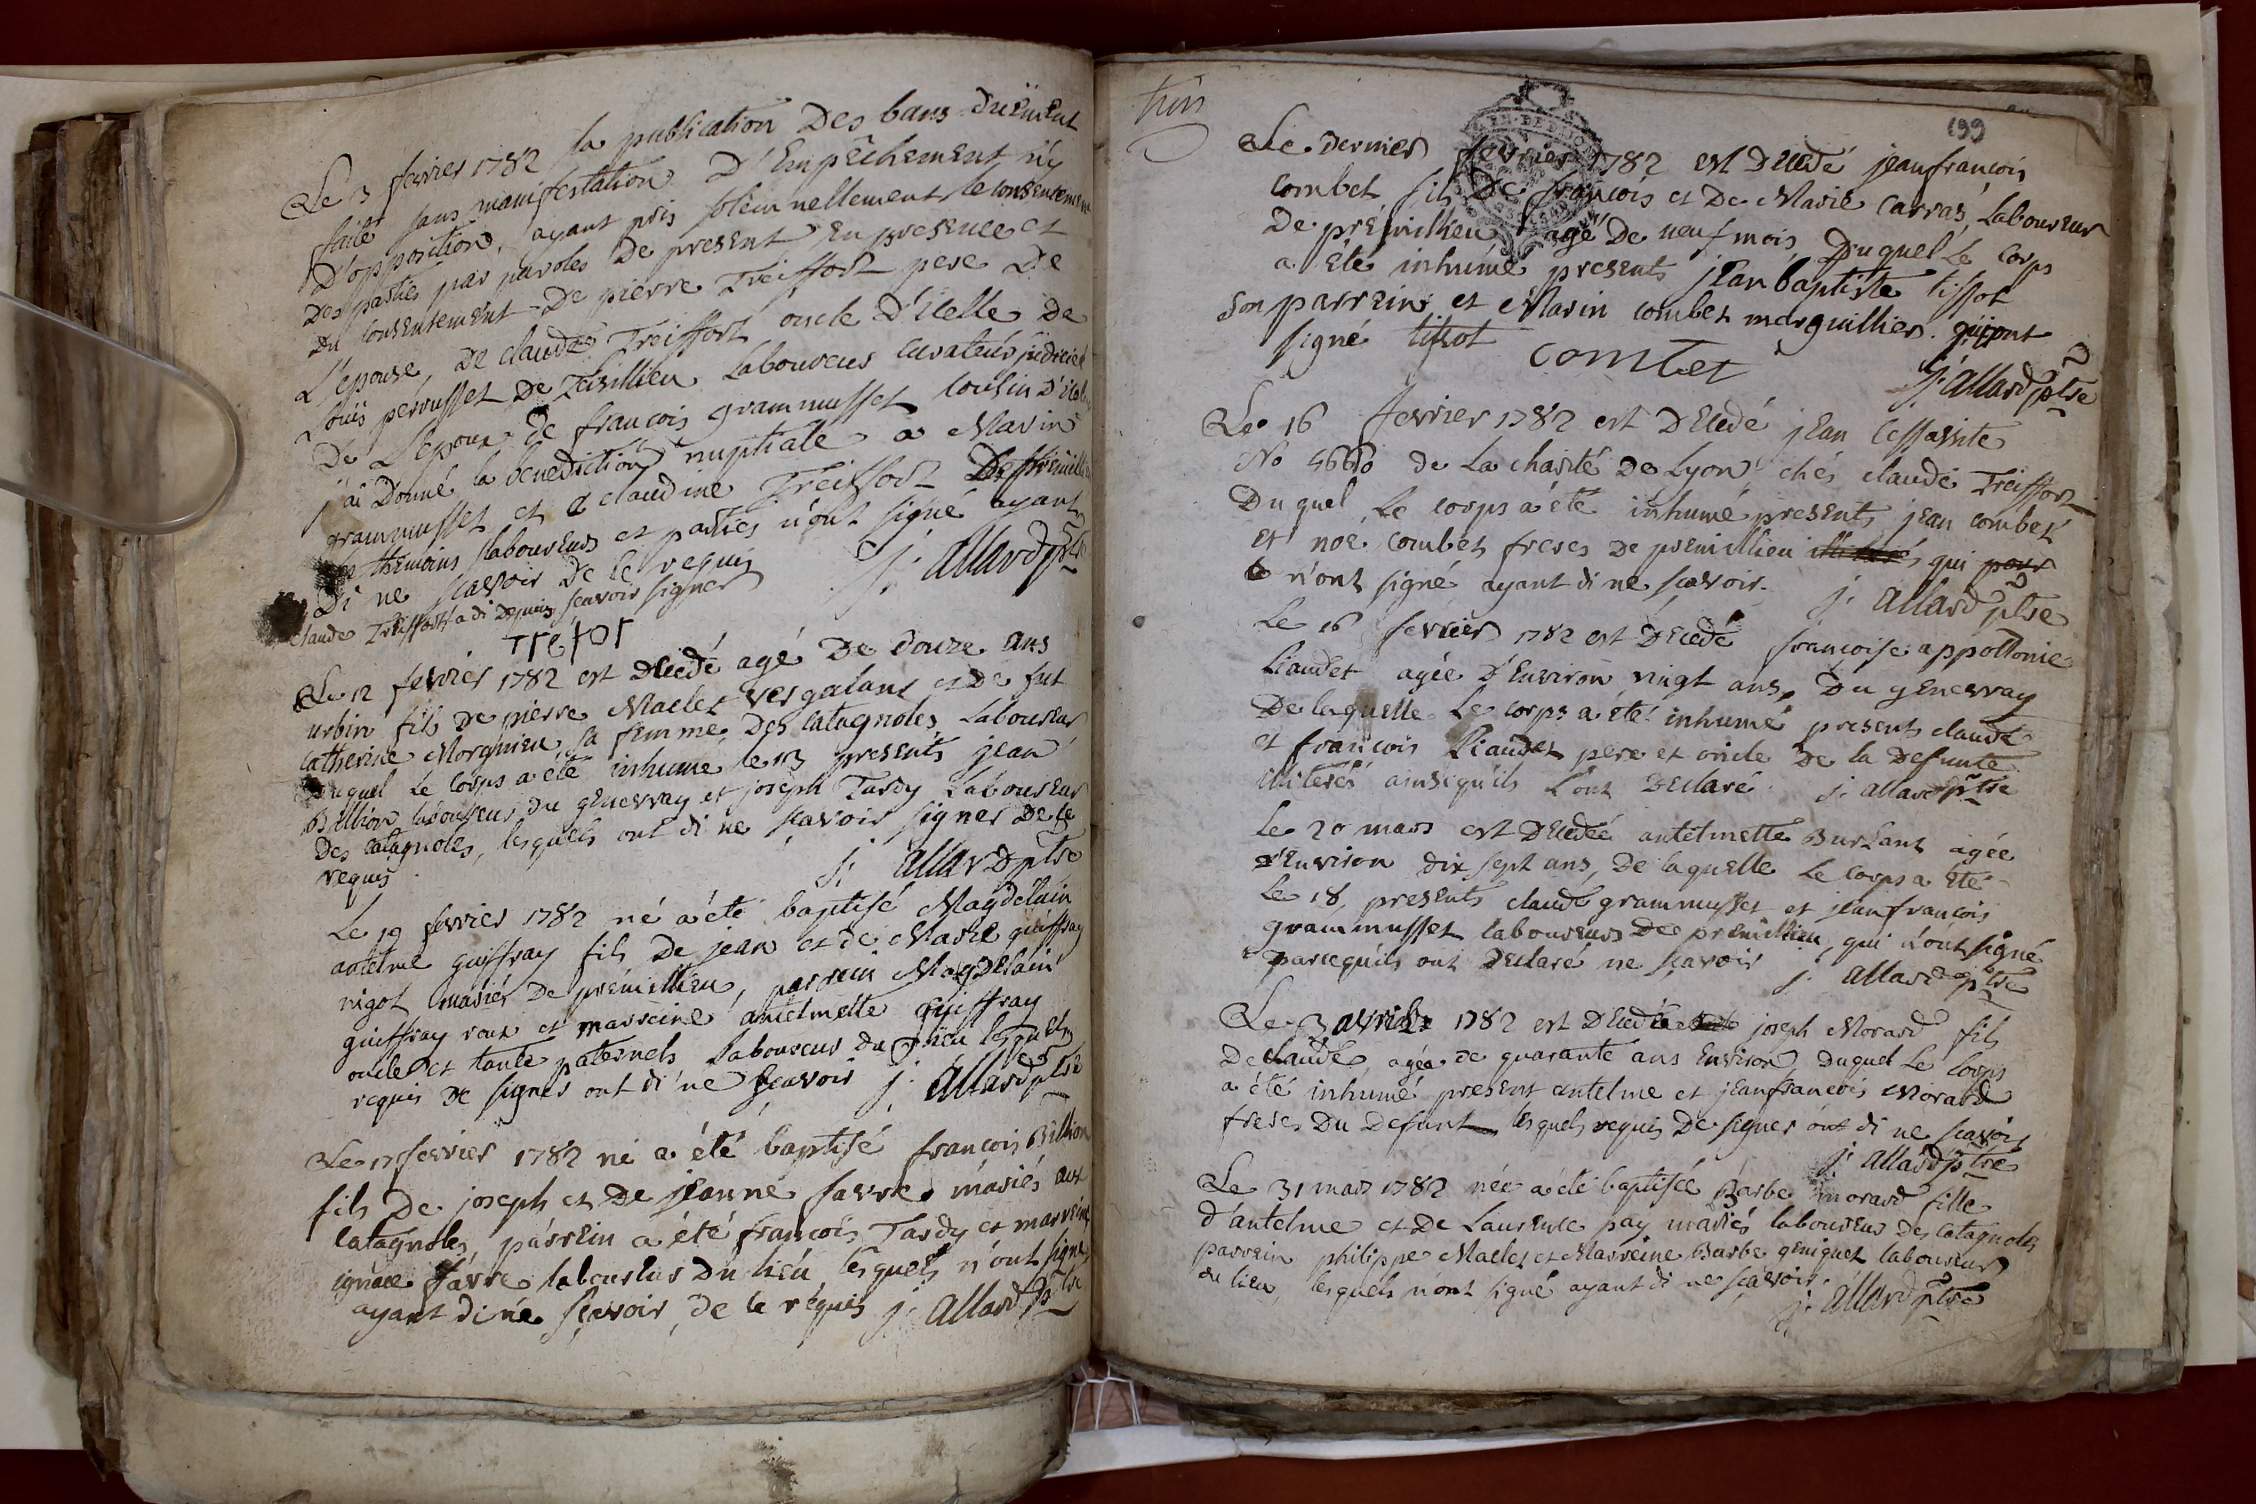 Le 3 fevrier 1782 la publication Des bans Duëment
faite sans manifestation D'Empêchement n'y
D'opposition, ayant pris solemnellement le consentement
Des parties par paroles De present En presence et
Du Consentement De pierre Treiffort pere De
L'epouse, De claude Treiffort oncle D'icelle De
Loüis perrusset De Laboureur curateur judiciel
De L'epoux De françois grammusset Cousin D'
j'ai Donné la benediction nuptiale a Marin
grammusset et a claudine Treiffort De premillieu
themoins laboureurs et parties n'ont signé ayant
Di ne sçavoir De ce requis j: allard ptre
claude Treiffort a di depuis sçavoir signer
Le 12 fevrier 1782 est Decedé agé De Douze ans
urbin fils De pierre Maclet vergalant et De fut
catherine Morgnieu sa femme Des catagnoles Laboureur
Duquel Le Corps a été inhumé le 13 presents jean
Billion laboureur Du genevray et joseph Tardy Laboureur
Des catagnoles, lesquels ont di ne sçavoir signer De ce
requis j: allard ptre
Le 19 fevrier 1782 né a été baptisé Magdelain
antelme guiffray fils De jean et de Marie guiffray
nigot mariés De premillieu, parrein Magdelain
guiffray roux et marreine antelmette guiffray
oncle et tante paternels Laboureurs du lieu lesquels
requis De signer ont di ne sçavoir j: allard ptre
Le 17 fevrier 1782 né a été baptisé françois Billion
fils De joseph et De jeanne favre mariés aux
catagnoles, parrein a été françois Tardy et marreine
ignace favre laboureurs Du lieu, lesquels n'ont signé
ayant di ne sçavoir, de ce requis j: allard ptre
trois
199
Le dernier fevrier 1782 est Decedé jeanfrançois
combet fils De françois et De Marie Carras, Laboureur
De prémillieu agé De neuf mois Duquel Le Corps
a été inhumé presents jean baptiste tissot
son parrein et Marin combet marguillier qui ont
signé tissot
combet
j: allard ptre
Le 16 fevrier 1782 est Decedé jean
No de La charité De Lyon chés claude Treiffort
Duquel Le corps a été inhumé presents jean combet
et noe combet freres De premillieu qui
n'ont signé ayant di ne sçavoir. j: allard ptre
Le 16 fevrier 1782 est Decedé françoise appollonie
Liaudet agée D'Environ vingt ans, Du genevray
De laquelle Le corps a été inhumé presents claude
et françois Liaudet pere et oncle De la Defunte
illiterés ainsi qu'ils L'ont Declaré. j: allard ptre
Le 20 mars est Decedée antelmette Burlant agée
D'Environ dix sept ans, De laquelle Le corps a été
Le 18, presents claude grammusset et jeanfrancois
grammusset laboureurs De premillieu, qui n'ont signé
parcequ'ils ont Declaré ne sçavoir j: allard ptre
Le 3 avril 1782 est Decedé joseph Morard fils
De claude agée De quarante ans Environ Duquel Le Corps
a été inhumé present antelme et jeanfrancois Morard
freres Du Defunt lesquels requis De signer ont di ne sçavoir
j: allard ptre
Le 31 mars 1782 née a été baptisée Barbe morard fille
d'antelme et De Laurence pay mariés laboureurs Des catagnoles
parrein philippe Maclet et Marreine Barbe geniquet laboureurs
du lieu, lesquels n'ont signé ayant di ne sçavoir.
j: allard ptre